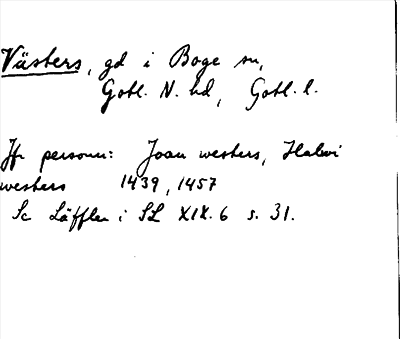 Västers, gd i Boge sn,
Gotl. N. hd, Gotl. l.
Jfr personn: Joan westers, Halvi
westers 1439, 1457
Se Läffler i SL XIX. 6 s. 31.